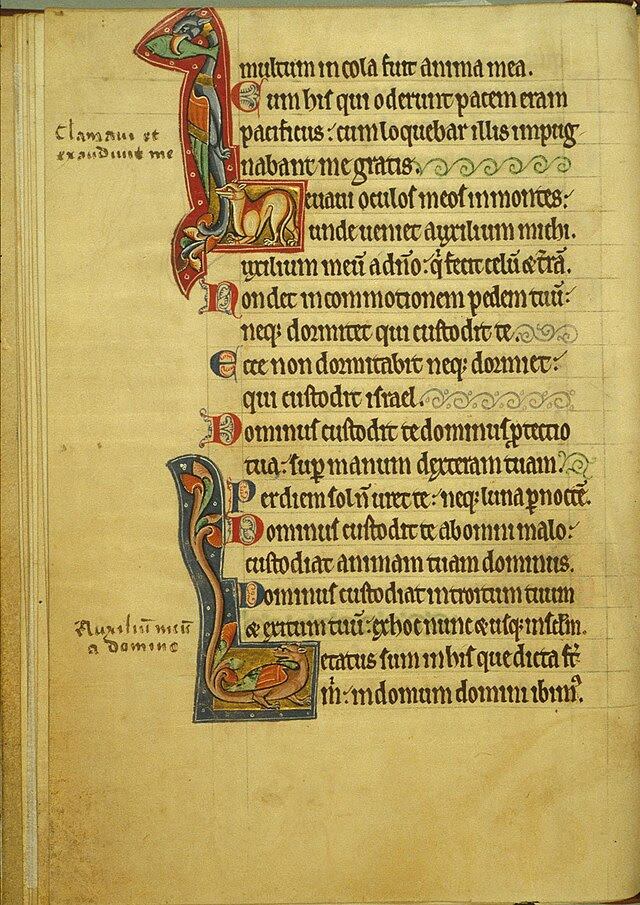 multum incola fuit anima mea.
Cum his qui oderunt pacem eram
pacificus: cum loquebar illis impug
nabant me gratis.
Clamaui et
exaudiuit me
Leuaui oculos meos in montes:
unde ueniet auxilium michi.
uxilium meū a dn̄o: q̄ fecit celū & t̄rā.
Non det in commotionem pedem tuū:
neq; dormitet qui custodit te.
Ecce non dormitabit neq; dormiet:
qui custodit israel.
Dominus custodit te dominus ꝓtectio
tua: sup̄ manum dexteram tuam.
Per diem sol n̄ uret te: neq; luna p̄ noctē.
Dominus custodit te ab omni malo:
custodiat animam tuam dominus.
Dominus custodiat introitum tuum
& exitum tuū: ex hoc nunc & usq; in sc̄lm.
Auxiliū meū
a domino
Letatus sum in his que dicta st̄
m̄: in domum domini ibim᾽.